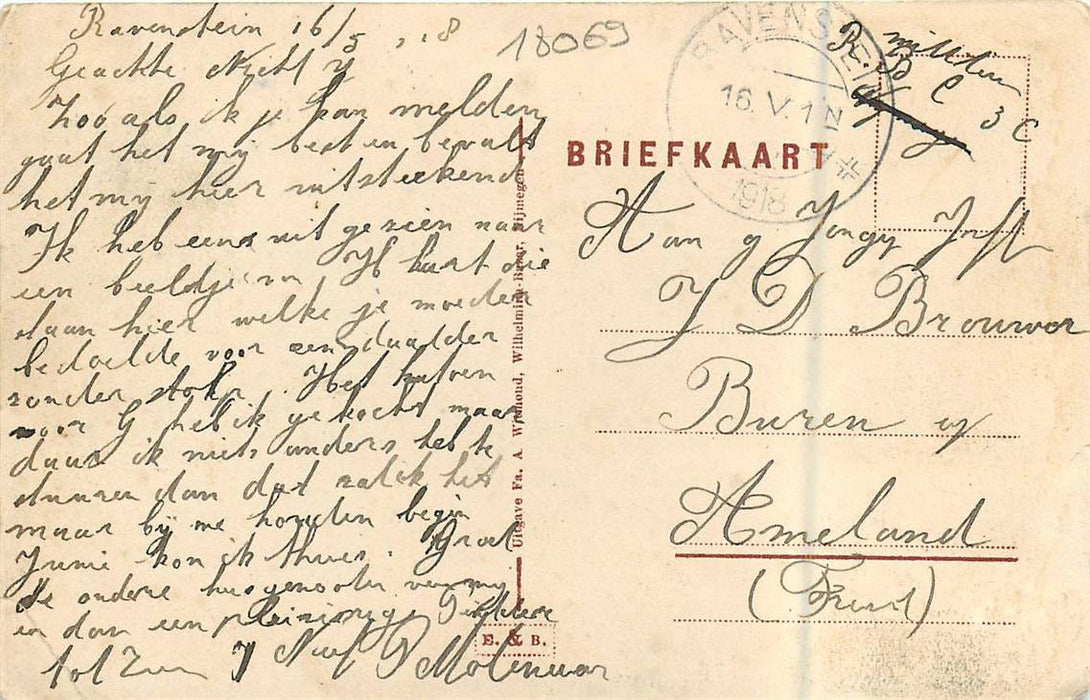 Ravenstein 16/5 , 18
Geachte Nicht
Zoo als ik je kan melden
gaat het mij best en bevalt
het mij hier uitsteekend
Ik heb eens uit gezien naar
een beeldje H hart die
staan hier welke je moeder
bedoelde voor een daalder
zonder stolp. Het
voor G heb ik gekocht maar
daar ik niets anders heb te
sturen dan dat zal ik het
maar bij me houden begin
Juni kom ik thuis. Groet
de andere huisgenooten van mij
en dan een
tot Zien J Neef D Molenaar
18069
RAVENSTEIN
16.V.1 N
1918
militair
3 C
BRIEFKAART
Aan
J D Brouwer
Buren op
Ameland
(Friesl)
Uitgave Fa. A Wilhelmina-Bazar, Nijmegen
E. & B.